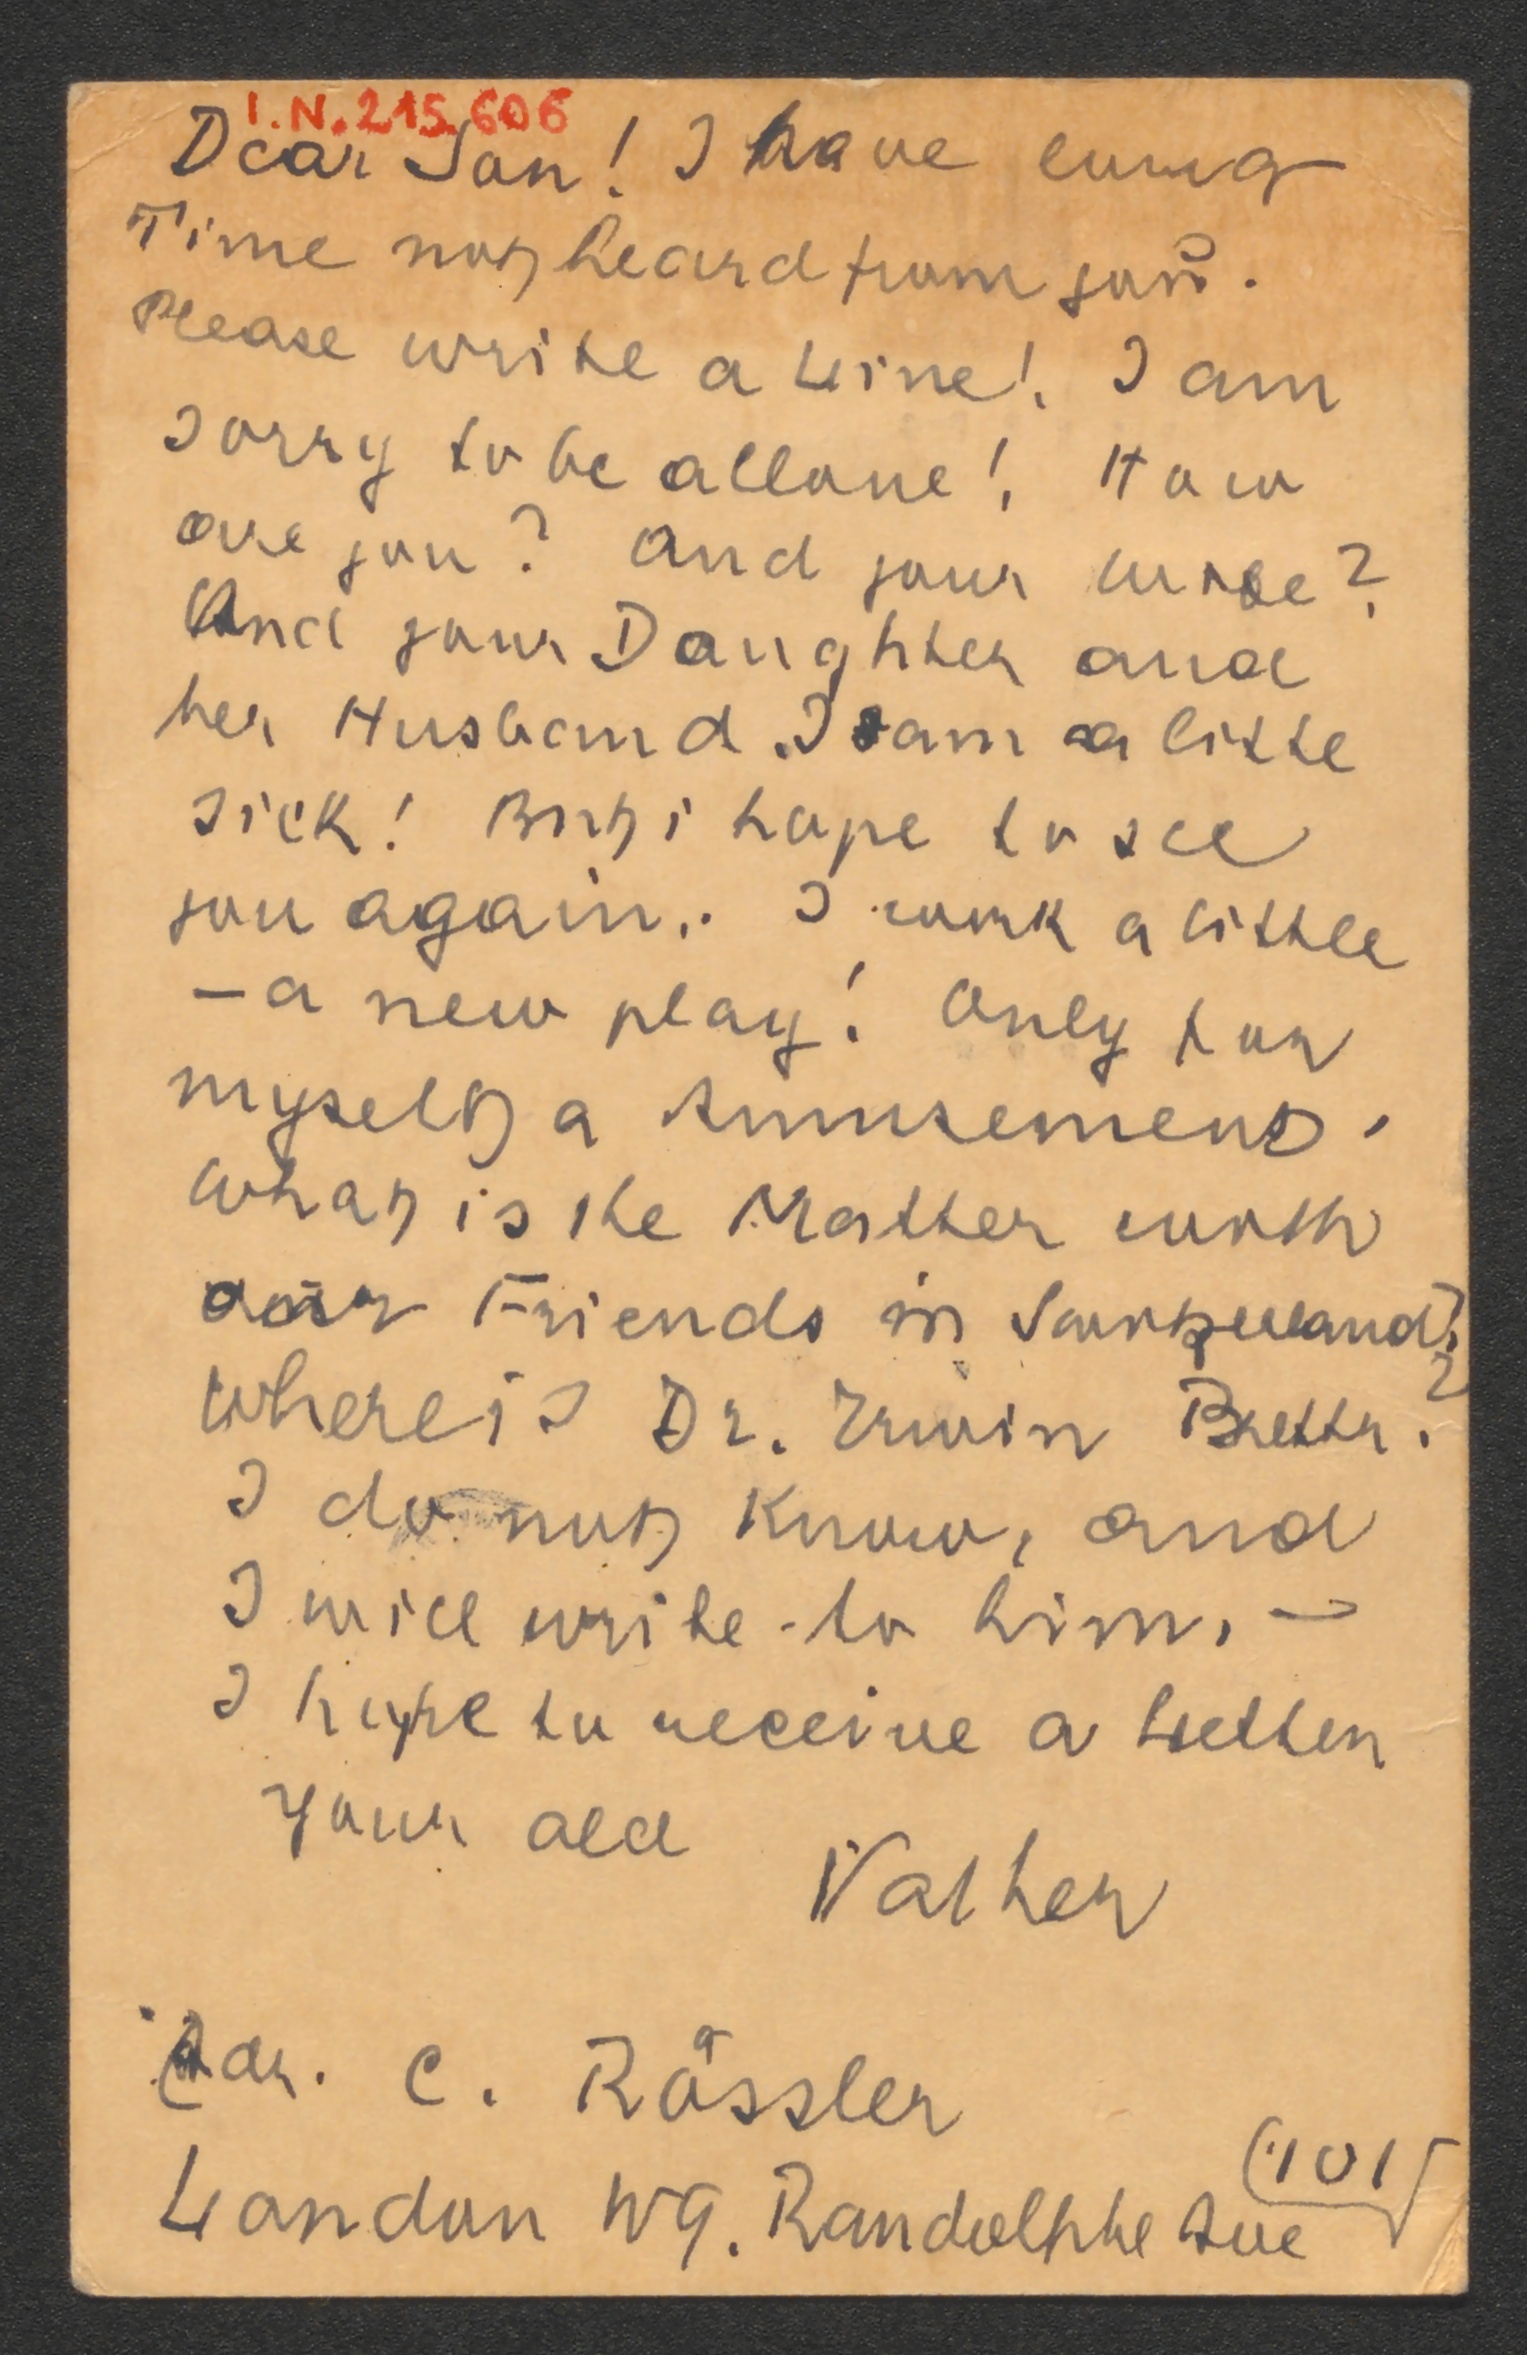 I.N. 215.606
Dear Son! I have long
Time not heard from you.
Please write a Line! I am
sorry to be allone! How
are you? And your wife?
And your Daughter and
her Husband. I am a little
sick! But i hope to see
you again. I work a little
– a new play! Only for
myself a Amusement.
What is the Matter with
our Friends in
Where is Dr. Erwin ?
I do not know, and
I will write to him. –
I hope to receive a Letter
Your old
Vather
Adr. C. Rössler
101
London W9. Randolphe Ave